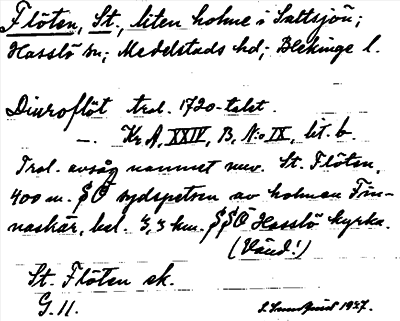 Flöten, St., liten holme i Saltsjön;
Hasslö sn; Medelstads hd; Blekinge l.
Diuroflöt trol. 1720-talet.
—. Kr. A, XXIV, B, No IX, lit. b.
Trol. avsåg namnet nuv. St. Flöten,
400 m. SÖ sydspetsen av holmen Tin-
naskär, bel. 3,3 km. SSÖ Hasslö kyrka.
(Vänd!)
St. Flöten ek.
G. 11.
1927.